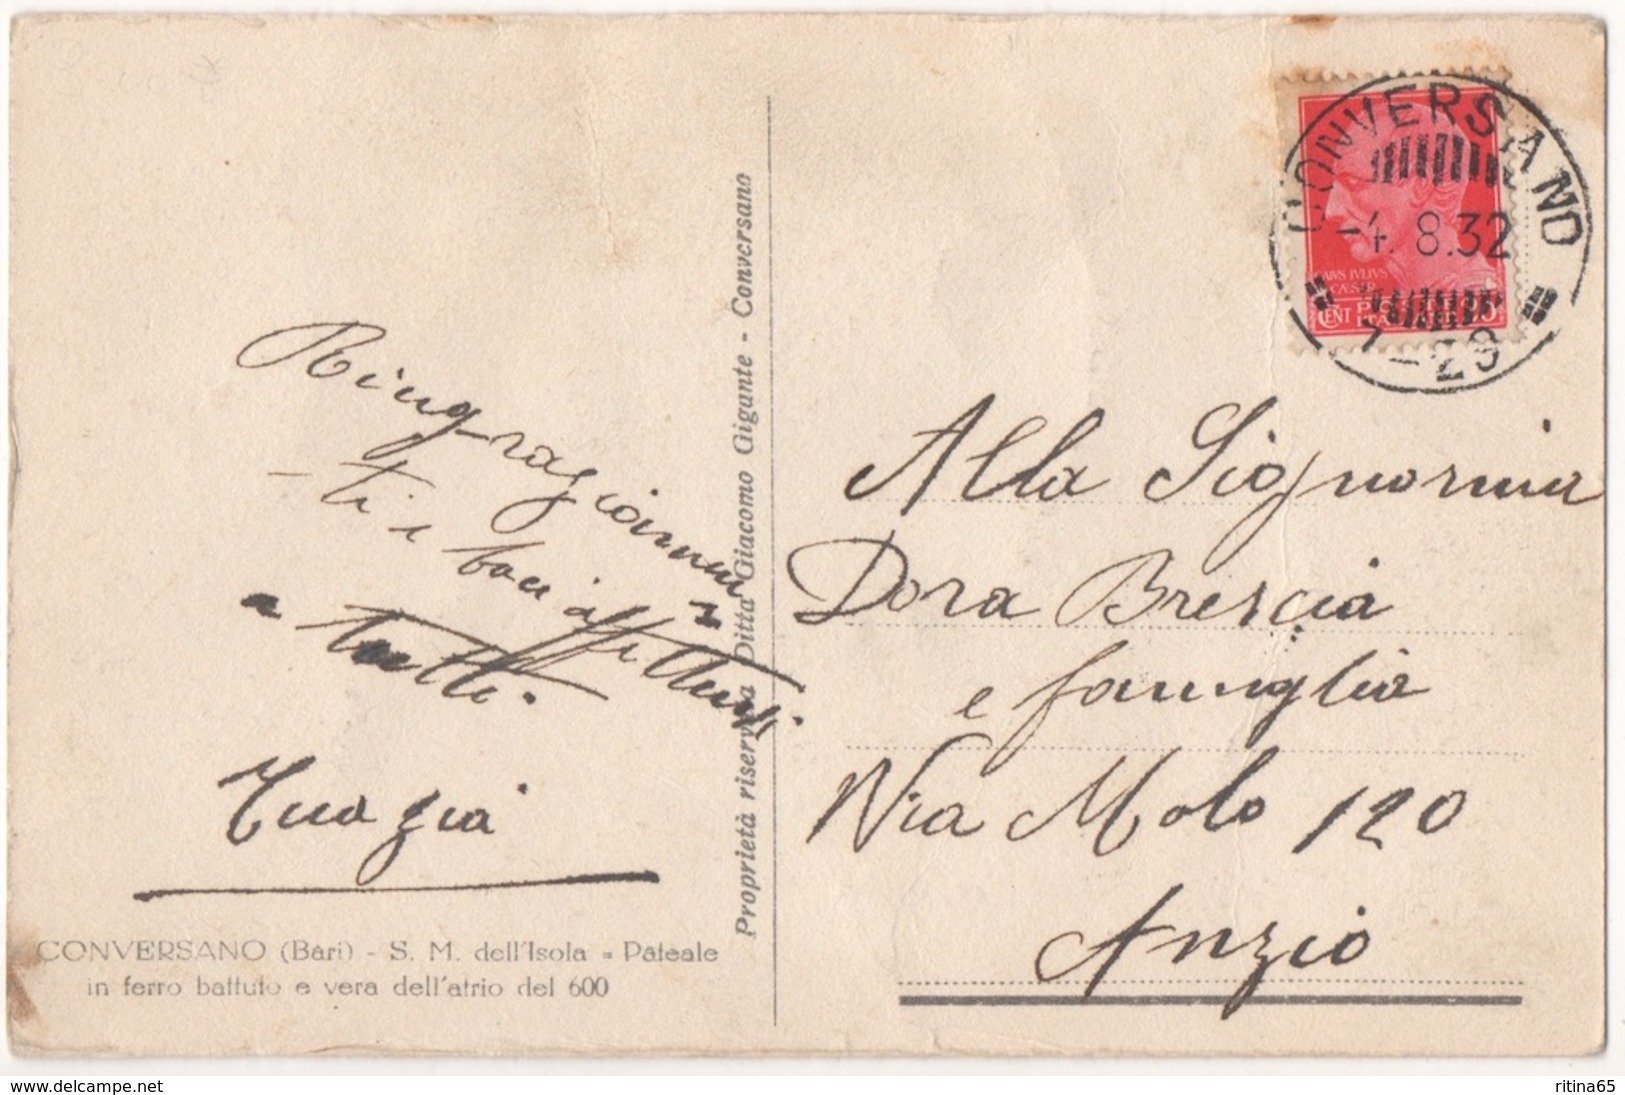 Ringraziamen
-ti e baci affettuosi
a tutti.
CONVERSANO (Bari) - S. M. dell'Isola = Pateale
in ferro battuto e vera dell'atrio del 600
Proprietà riservata Ditta Giacomo Gigante - Conversano
CONVERSANO
-4. 8.32
IVLIVS
CENT
Alla Signorina
Dora Brescia
e famiglia
Via Molo 120
Anzio
www.delcampe.net
ritina65